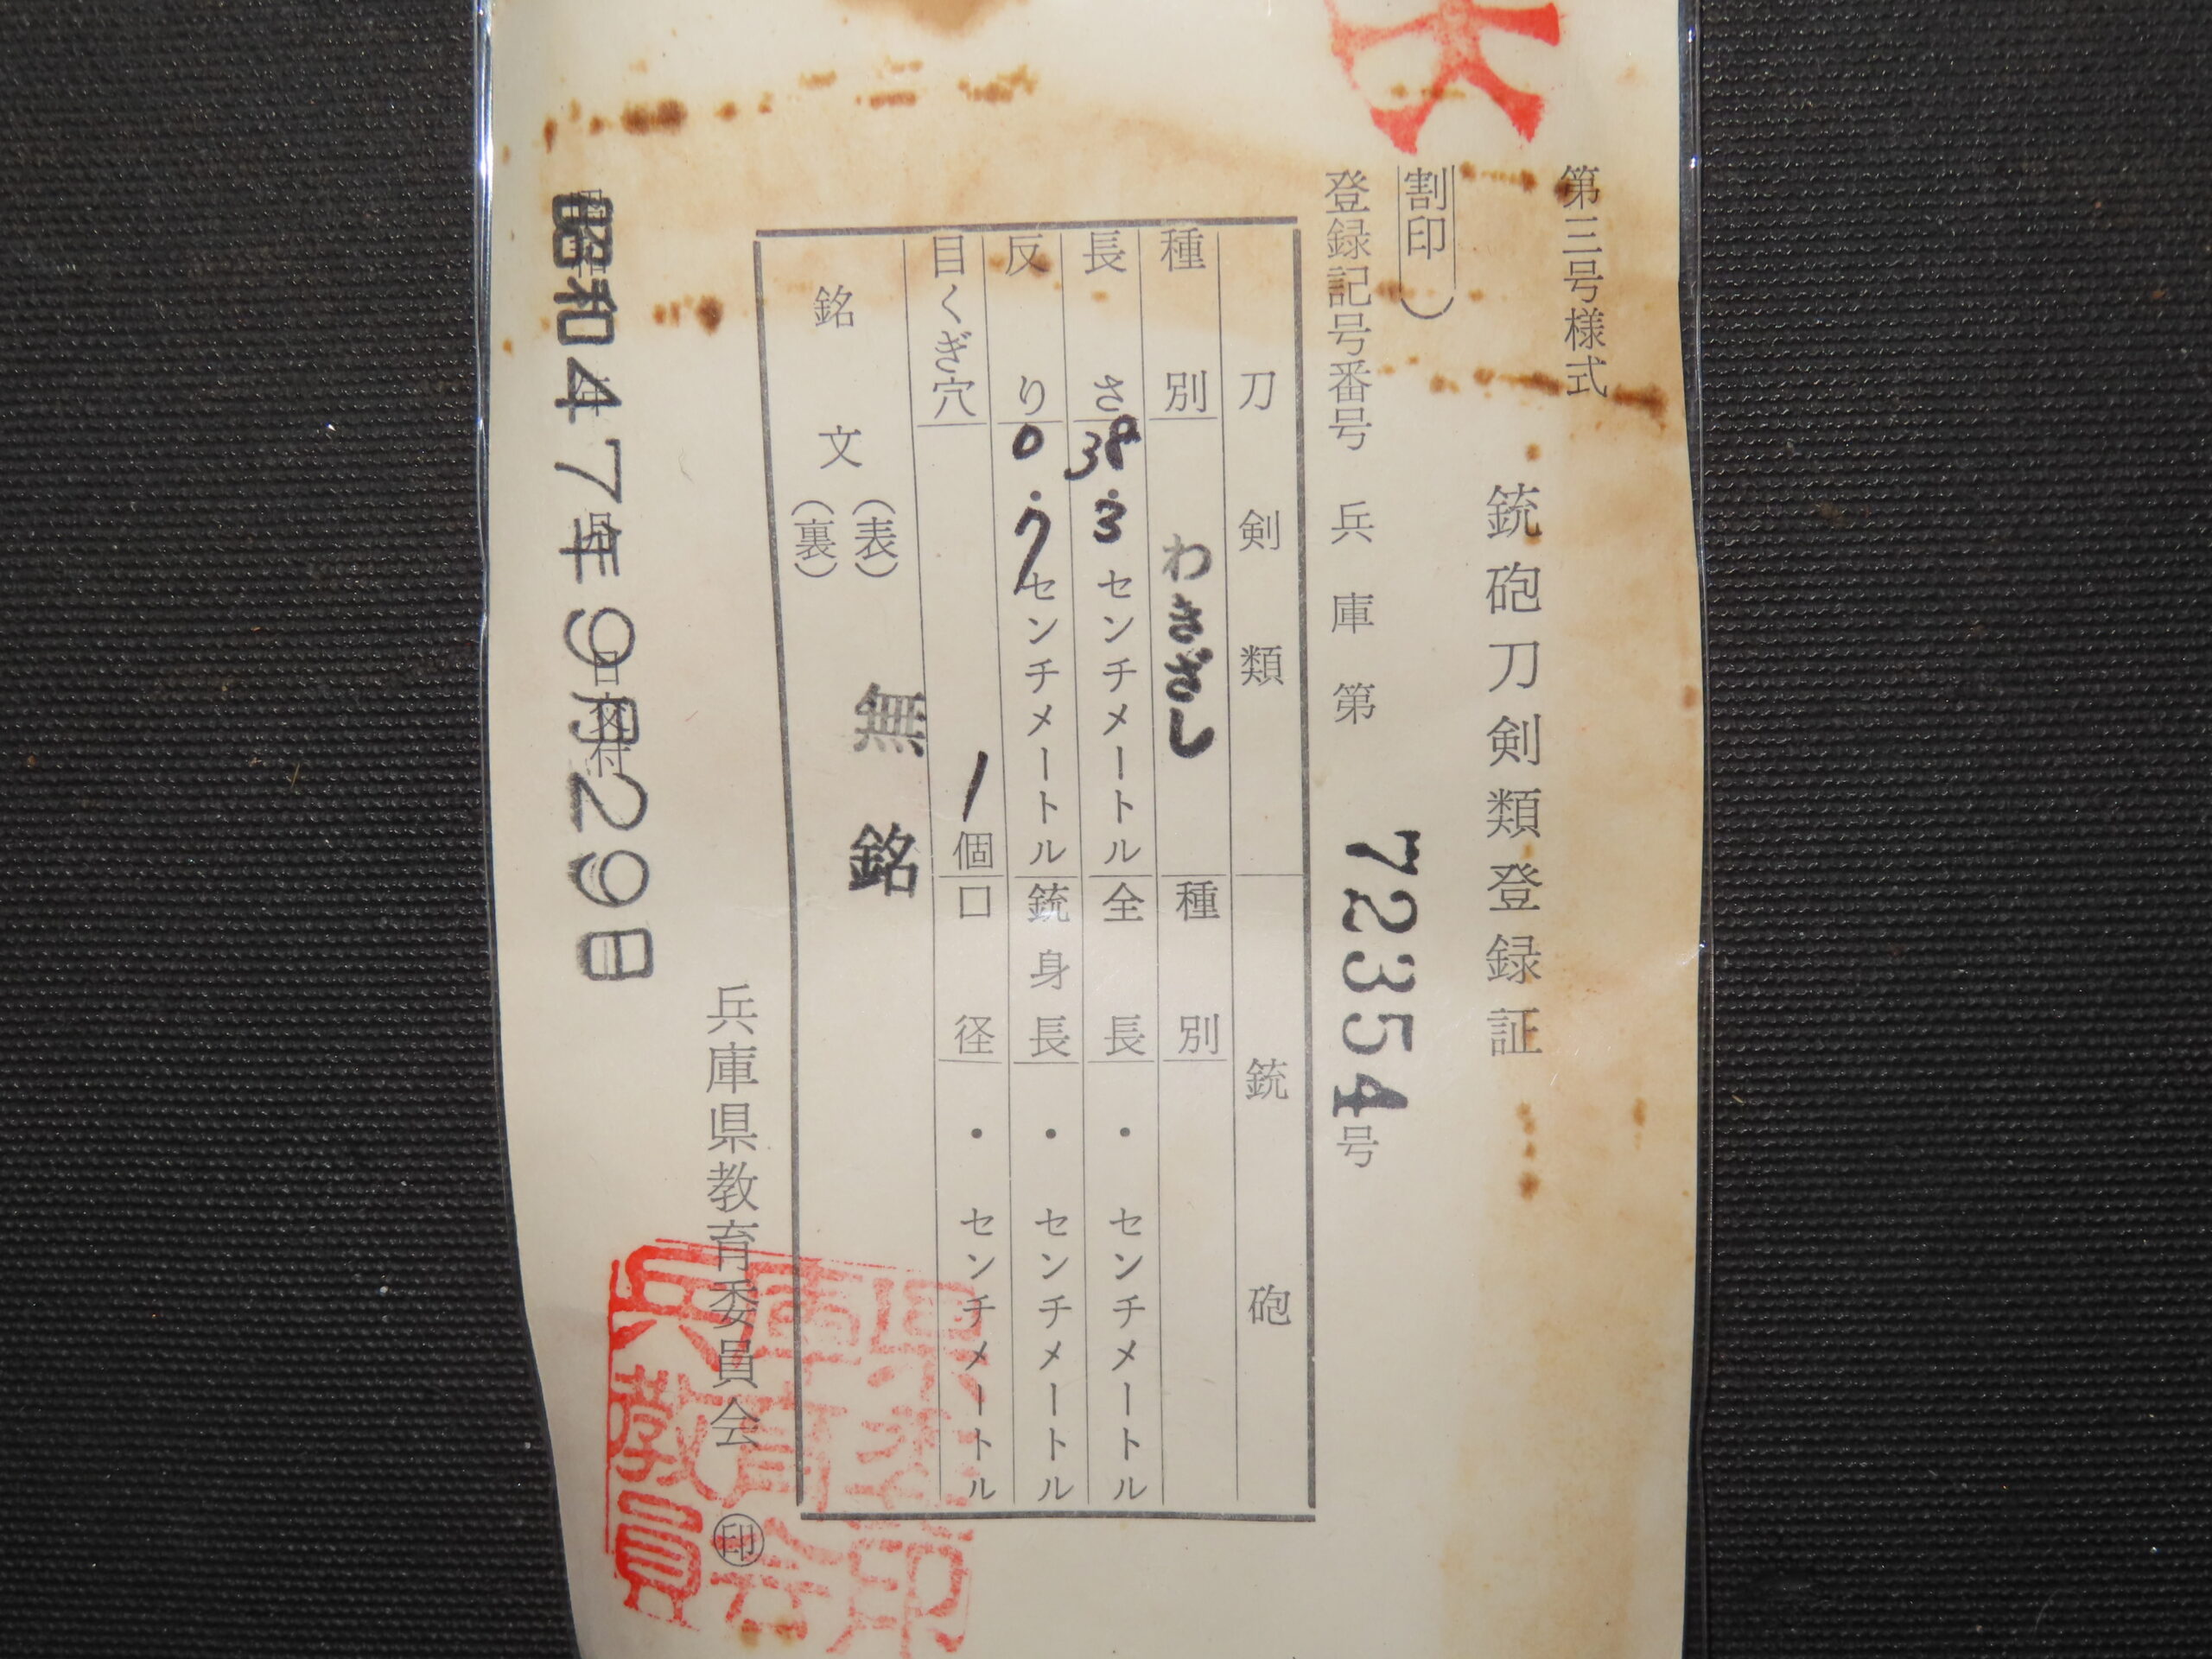 第三号様式
銃砲刀剣類登録証
割印
登録記号番号 兵庫第 72354号
刀剣類 銃砲
種別 わきざし 種別
長さ 38.3センチメートル 全長 ・ センチメートル
反り 0.7センチメートル 銃身長 ・ センチメートル
目くぎ穴 1個 口径 ・ センチメートル
銘文 (表) 無銘
(裏)
兵庫県教育委員会 印
昭和47年9月29日
交付
兵庫県
教育委
員会印